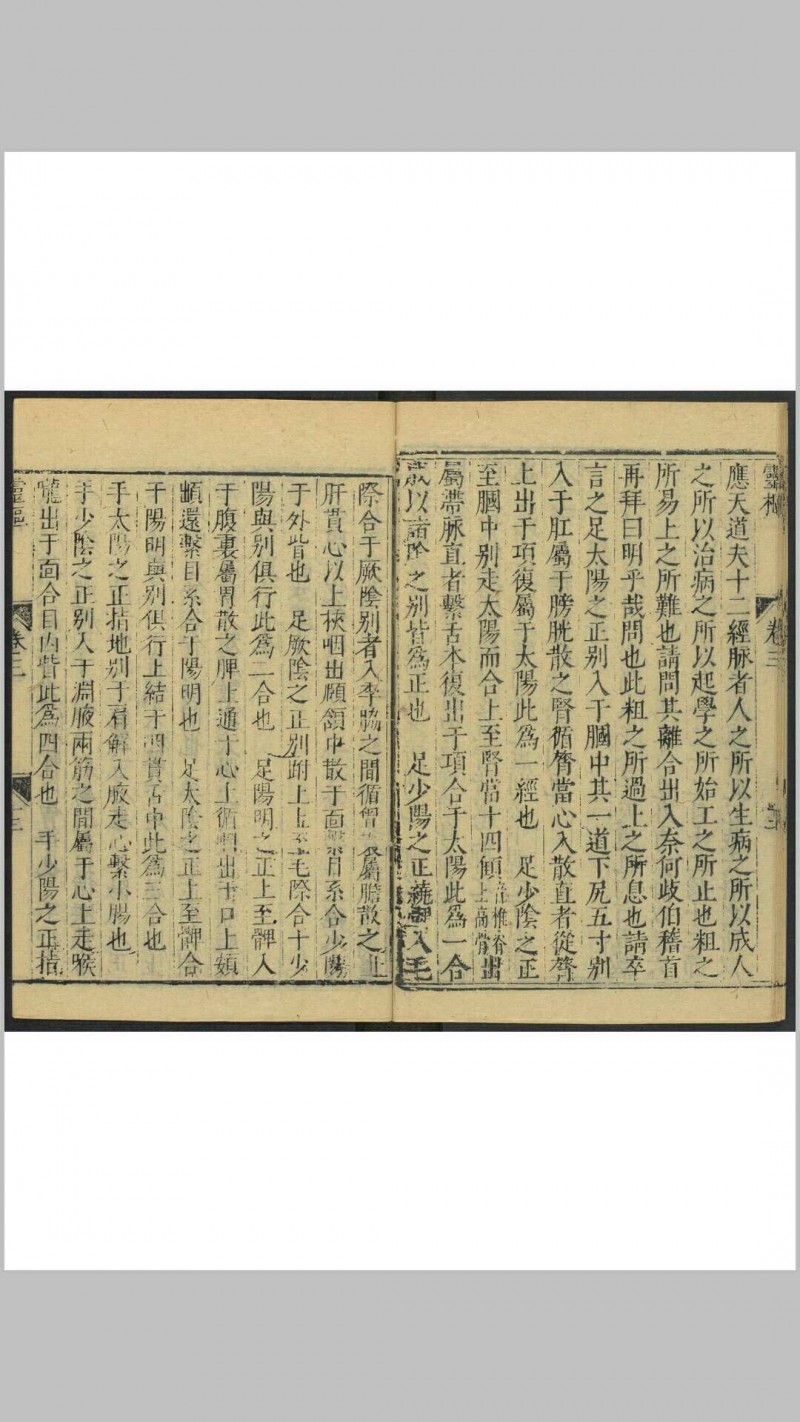 靈樞 卷三 二
應天道夫十二經脉者人之所以生病之所以成人
之所以治病之所以起學之所始工之所止也粗之
所易上之所難也請問其離合出入奈何歧伯稽首
再拜曰明乎哉問也此粗之所過上之所息也請卒
言之足太陽之正别入于膕中其一道下尻五寸别
入于肛屬于膀胱散之腎循膂當心入散直者從膂
上出于項復屬于太陽此爲一經也 足少陰之正
至膕中别走太陽而合上至腎當十四顀出
屬帶脉直者繫舌本復出于項合于太陽此爲一合
成以諸陰之别皆爲正也 足少陽之正繞髀入毛
際合于厥陰别者入季脇之間循胷裏屬膽散之上
肝貫心以上挾咽出頤頷中散于面繫目系合少陽
于外眥也 足厥陰之正别跗上上至毛際合于少
陽與别俱行此爲二合也 足陽明之正上至髀入
于腹裏屬胃散之脾上通于心上循咽出于口上頞
䪼還繫目系合于陽明也 足太陰之正上至髀合
于陽明與别俱行上結于咽貫舌中此爲三合也
手太陽之正指地别于肩解入腋走心繫小腸也
手少陰之正别入于淵腋兩筋之間屬于心上走喉
嚨出于面合目内眥此爲四合也 手少陽之正指
靈樞 卷三 三